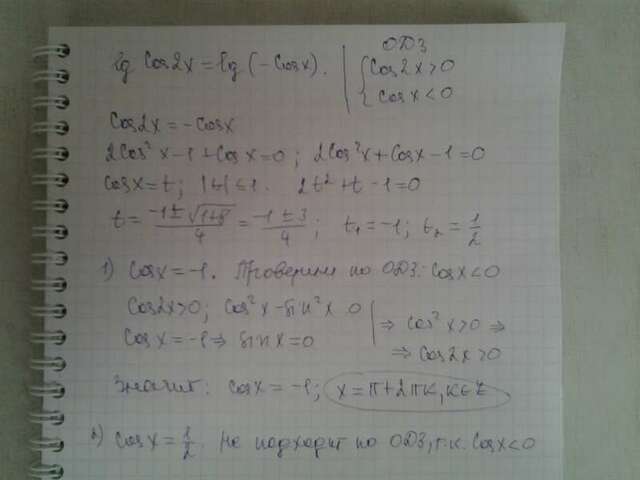 lg Cos2x = lg(-Cosx).
ОДЗ
{ Cos2x>0
Cosx<0
Cos2x = -Cosx
2Cos²x-1+Cosx=0; 2Cos²x+Cosx-1=0
Cosx=t; |t|≤1. 2t²+t-1=0
t = (-1±√(1+8))/4 = (-1±3)/4; t₁=-1; t₂=1/2
1) Cosx=-1. Проверим по ОДЗ: Cosx<0
Cos2x>0; Cos²x-sin²x 0
Cosx=-1⇒ sinx=0
⇒ Cos²x>0 ⇒
⇒ Cos2x>0
Значит: Cosx=-1; x=π+2πk, k∈Z
2) Cosx=1/2. Не подходит по ОДЗ, т.к. Cosx<0